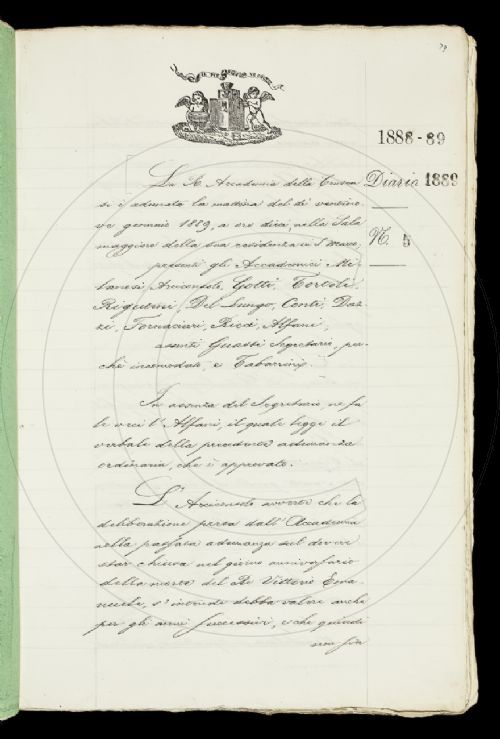 79
1888-89
Diario 1889
N. 5
La R. Accademia della Crusca
si è adunata la mattina del dì ventino
ve gennaio 1889, a ore dieci, nella Sala
maggiore della sua residenza in S. Marco,
presenti gli Accademici Mi-
lanesi Arciconsolo, Gotti, Tortoli,
Rigutini, Del Lungo, Conti, Daz-
zi, Fornaciari, Ricci, Alfani;
assenti Guasti Segretario, per-
chè incomodato, e Tabarrini.
In assenza del Segretario, ne fa
le veci l'Alfani, il quale legge il
verbale della precedente adunanza
ordinaria, che è approvato.
L'Arciconsolo avverte che la
deliberazione presa dall'Accademia
nella passata adunanza del dover
star chiusa nel giorno anniversario
della morte del Re Vittorio Ema-
nuele, s'intende debba valere anche
per gli anni successivi, e che quindi
non sia